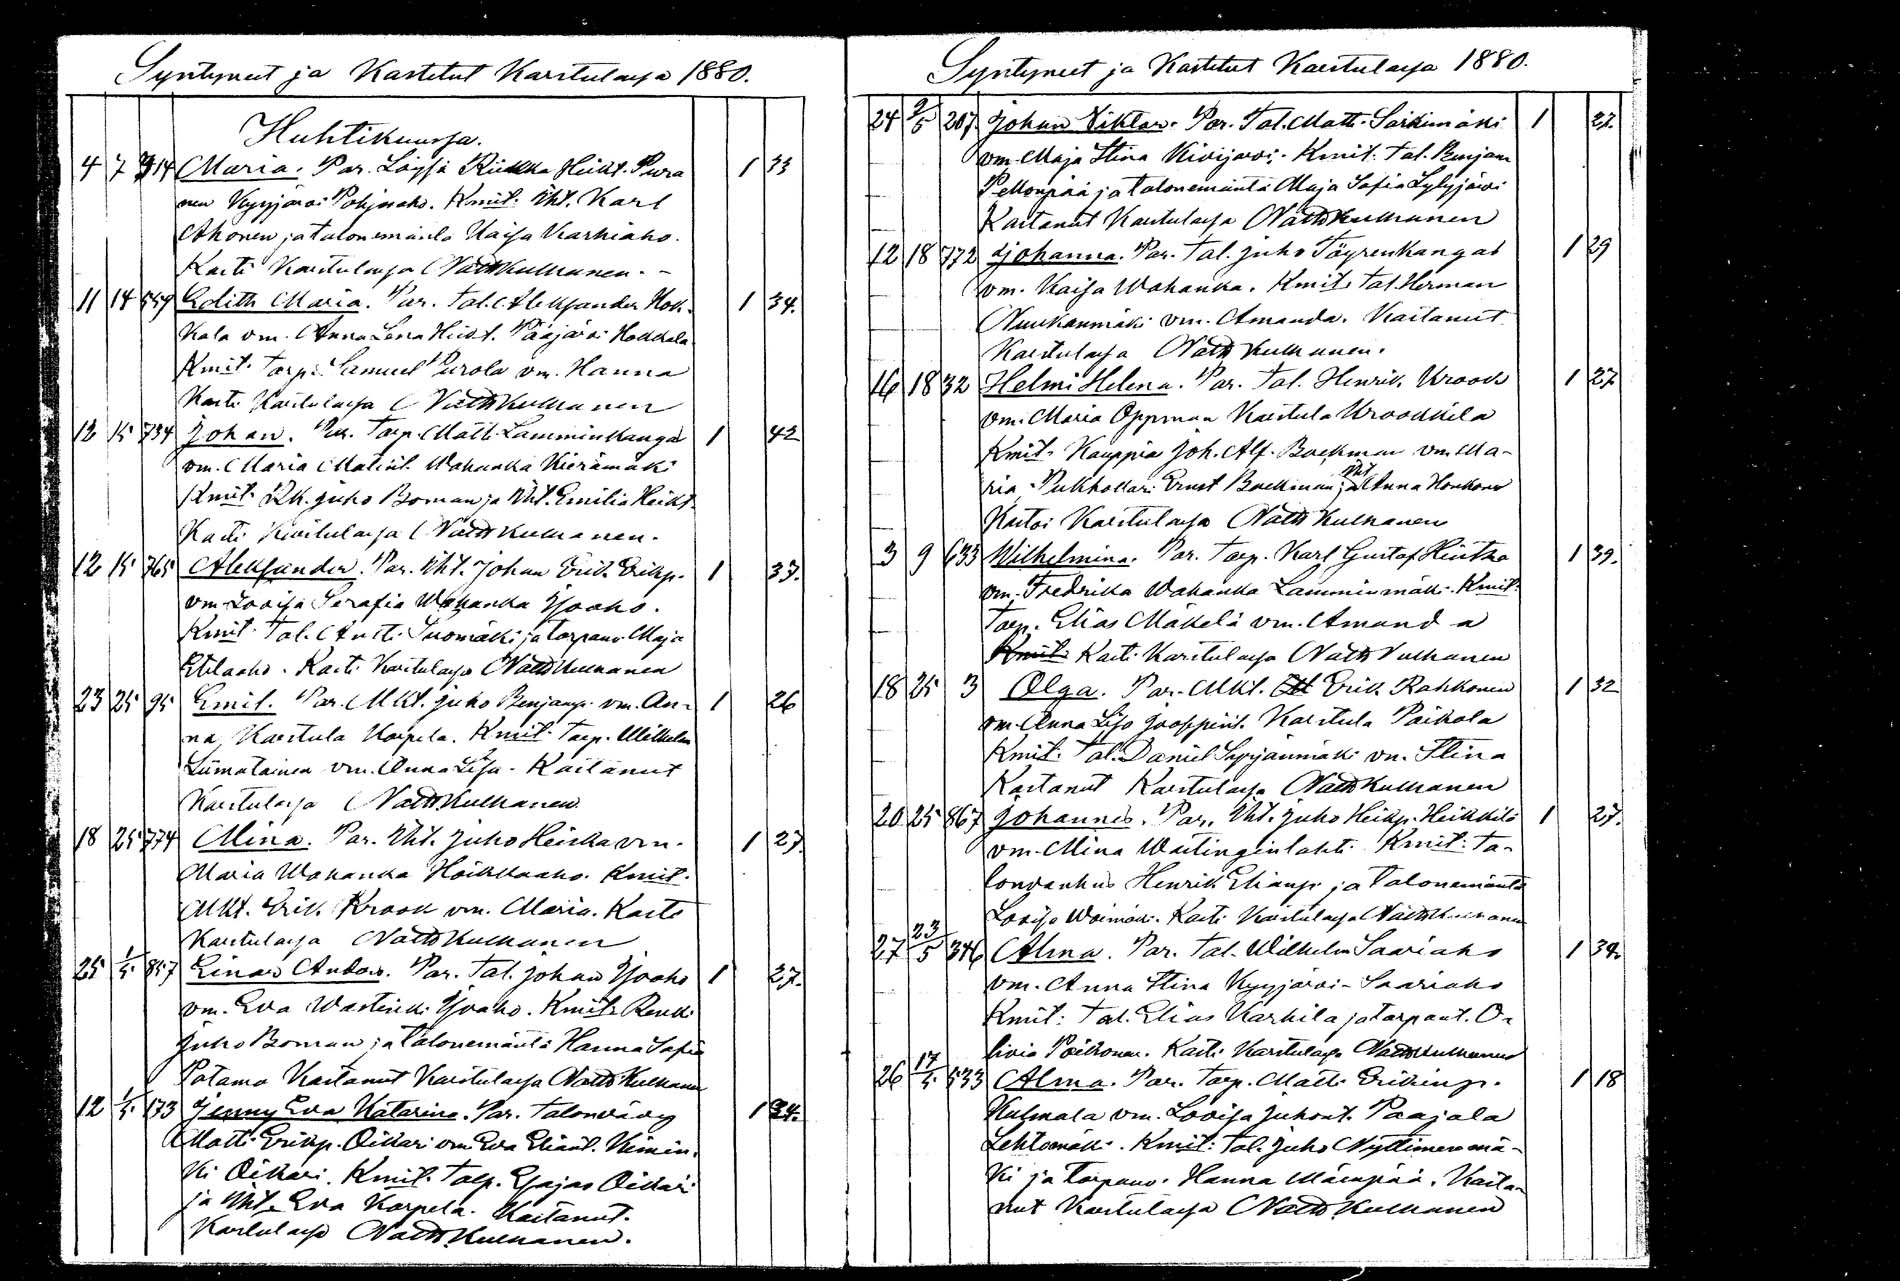 Syntyneet ja Kastetut Karstulassa 1880.
Huhtikuussa.
4 7 914 Maria. Par. Löysä Riikka Heikt. Pura 1 33
nen Kyyjärvi Pohjoisaho. Kmit: Iht. Karl
Ahonen ja talonemäntä Kaisa Karhiaho.
Kasti Karstulassa Nath Kulhanen.-
11 14 559 Edith Maria. Par. Tal. Aleksander Hok- 1 34.
kala vm. Anna Lena Heikt. Pääjärvi Hokkala
Kmit: Torp. Samuel Purola vm. Hanna
Kasti Karstulassa Nath Kulhanen
12 15 734 Johan. Par. Torp. Matti Lamminkangas 1 42
vm. Maria Matint. Wahanka Kierämäki
Kmit: Rk. Juho Boman ja Iht. Emilia Heikt.
Kasti Karstulassa Nath Kulhanen.
12 15 765 Aleksander. Par. Iht. Johan Erik Erikp. 1 37.
vm. Lovisa Serafia Wahanka Isoaho.
Kmit: Tal. Antti Suomäki ja torpanv. Maja
Etelaaho. Kasti Karstulassa Nath Kulhanen
23 25 95 Emil. Par. Mkt. Juho Benjamp. vm. An- 1 26
na, Karstula Korpela. Kmit: Torp. Wilhelm
Liimatainen vm. Anna Lisa. Kastanut
Karstulassa Nath Kulhanen
18 25 774 Mina. Par. Iht. Juho Heiska vm. 1 27.
Maria Wahanka Hoikkaaho. Kmit:
Mkt. Erik Krook vm. Maria. Kasti
Karstulassa Nath Kulhanen
25 1/5 857 Einar Andor. Par. Tal. Johan Isoaho 1 27.
vm. Eva Wastinki Isoaho. Kmit: Renki
Juho Boman ja talonemäntä Hanna Sofia
Potamo Kastanut Karstulassa Nath Kulhanen
12 1/5 173 Jenny Eva Katarina. Par. Talonvävy 1 34.
Matti Erikp. Oikari vm. Eva Eliant. Kimin
ki Oikari. Kmit: Torp. Esajas Oikari
ja Iht. Eva Korpela. Kastanut.
Karstulassa Nath Kulhanen.
Syntyneet ja Kastetut Karstulassa 1880.
24 9/5 207. Johan Viktor. Par. Tal. Matti Särkimäki 1 27.
vm. Maja Stina Kivijärvi. Kmit: Tal. Benjam
Pellonpää ja talonemäntä Maja Sofia Lylyjärvi
Kastanut Karstulassa Nath Kulhanen
12 18 772 Johanna. Par. Tal. Juho Töyrenkangas 1 29
vm. Kaisa Wahanka. Kmit: Tal. Herman
Nuukanmäki vm. Amanda. Kastanut
Karstulassa Nath Kulhanen.
16 18 32 Helmi Helena. Par. Tal. Henrik Krook 1 27
vm. Maria Oppman Karstula Krookkila
Kmit: Kauppias Joh. Alf. Backman vm. Ma-
ria, Pukhollari Ernst Backman ja Iht Anna Honkonen
Kastoi Karstulassa Nath Kulhanen
3 9 633 Wilhelmina. Par. Torp. Karl Gustaf Hintka 1 39.
vm. Fredrika Wahanka Lamminmäki. Kmit:
Torp. Elias Mäkelä vm. Amanda
Kmit: Kasti Karstulassa Nath Kulhanen
18 25 3 Olga. Par. Mkt. Erik Rahkonen 1 32
vm. Anna Liso Jooppint. Karstula Paikola
Kmit: Tal. Daniel Syrjänmäki vm. Stina
Kastanut Karstulassa Nath Kulhanen
20 25 867 Johannes. Par. Iht. Juho Heikp. Heikkilä 1 27.
vm. Mina Wastinginlahti. Kmit: ta-
lonvanhus Henrik Elianp. ja talonemäntä
Lovisa Woimäki. Kasti Karstulassa Nath Kulhanen
27 23/5 346 Alma. Par. Tal. Wilhelm Saariaho 1 34.
vm. Anna Stina Kyyjärvi Saariaho
Kmit: Tal. Elias Karhila ja torpant. O-
livia Poikonen. Kasti Karstulassa Nath Kulhanen
26 17/5 533 Alma. Par. Torp. Matti Erikinp. 1 18
Kulmala vm. Lovisa Juhont. Paajala
Lehtomäki. Kmit: Tal. Juho Nyttimenmä-
ki ja torpanv. Hanna Mäenpää. Kasta-
nut Karstulassa Nath Kulhanen